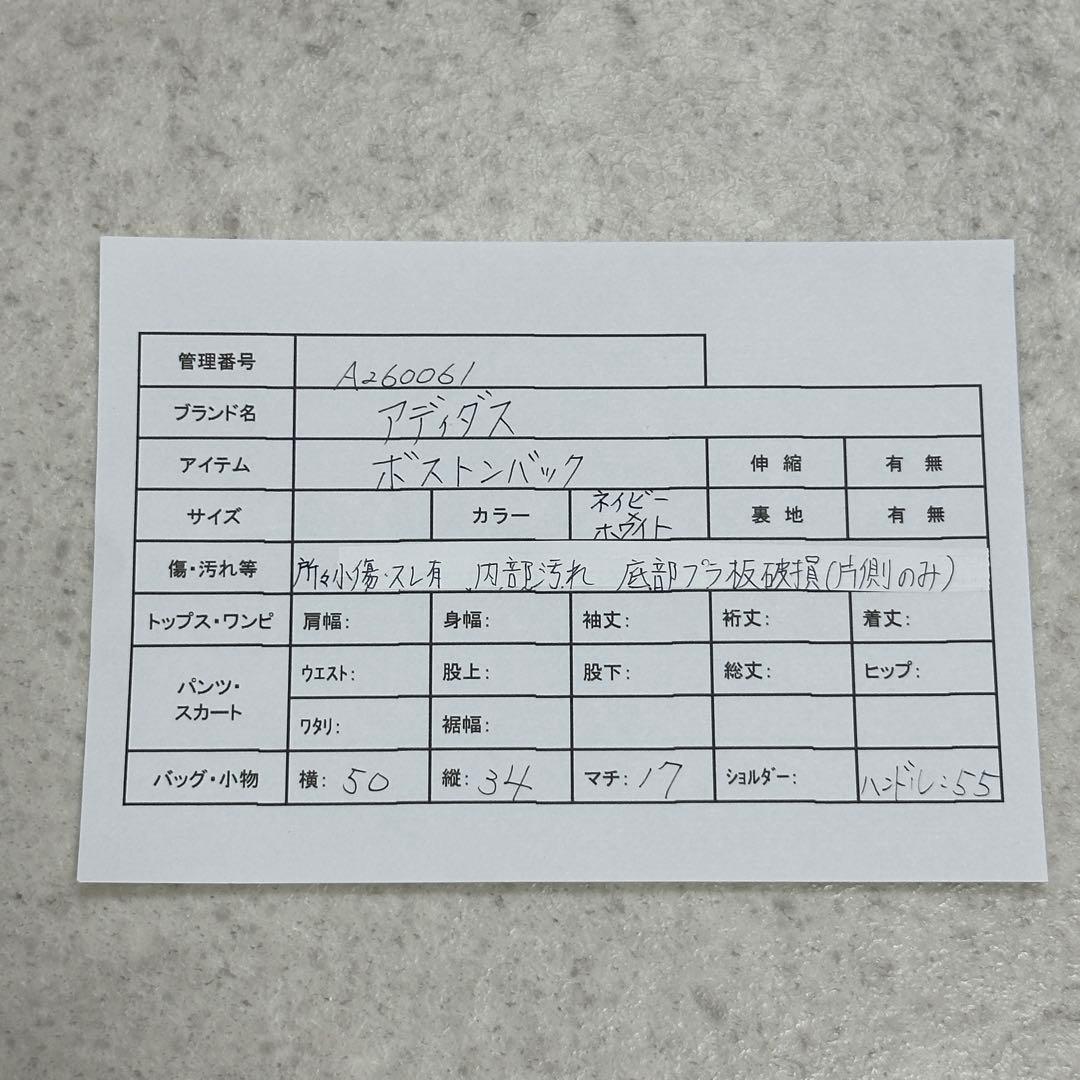 管理番号 A260061
ブランド名 アディダス
アイテム ボストンバック 伸縮 有 無
サイズ カラー ネイビー×ホワイト 裏地 有 無
傷・汚れ等 所々小傷・スレ有 内部汚れ 底部プラ板破損(片側のみ)
トップス・ワンピ 肩幅: 身幅: 袖丈: 裄丈: 着丈:
パンツ・スカート ウエスト: 股上: 股下: 総丈: ヒップ:
ワタリ: 裾幅:
バッグ・小物 横: 50 縦: 34 マチ: 17 ショルダー: ハンドル:55